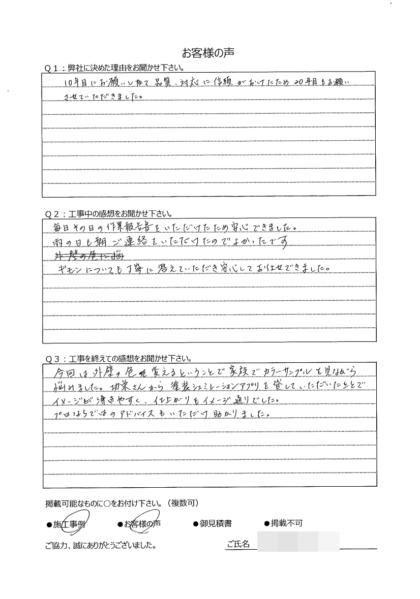 お客様の声
Q1：弊社に決めた理由をお聞かせ下さい。
10年目にお願いした時で品質、対応に信頼がおけたため20年目もお願い
させていただきました。
Q2：工事中の感想をお聞かせ下さい。
毎日その日の作業報告書をいただけたため安心できました。
雨の日も朝ご連絡をいただけたのでよかったです
ギモンについても丁寧に答えていただき安心しておまかせできました。
Q3：工事を終えての感想をお聞かせ下さい。
今回は外壁の色を変えるということで家族でカラーサンプルを見ながら
悩みました。さんから塗装シュミレーションアプリを貸していただいたことで
イメージが湧きやすく、仕上がりもイメージ通りでした。
プロならではのアドバイスもいただけ助かりました。
掲載可能なものに○をお付け下さい。（複数可）
●施工事例 ●お客様の声 ●御見積書 ●掲載不可
ご協力、誠にありがとうございました。 ご氏名